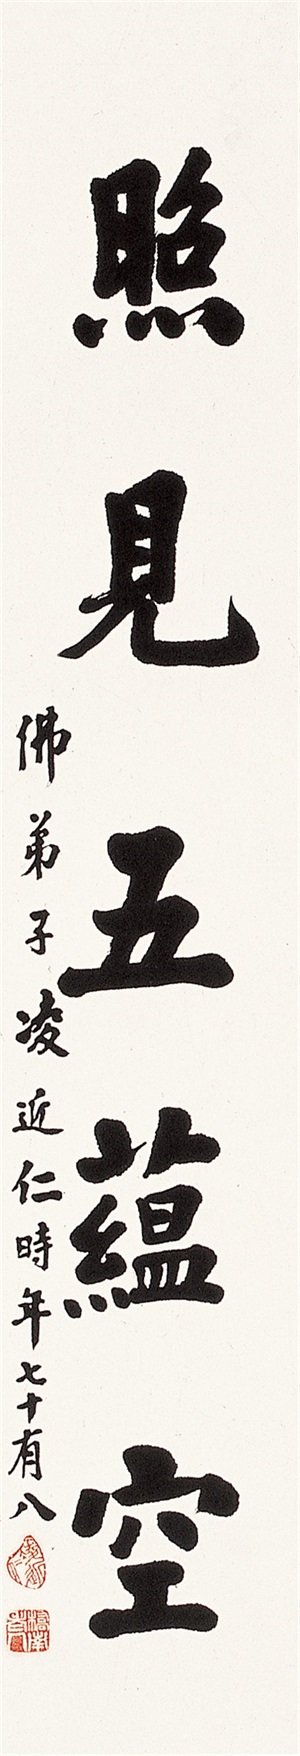 照見五蘊空
佛弟子凌近仁時年七十有八